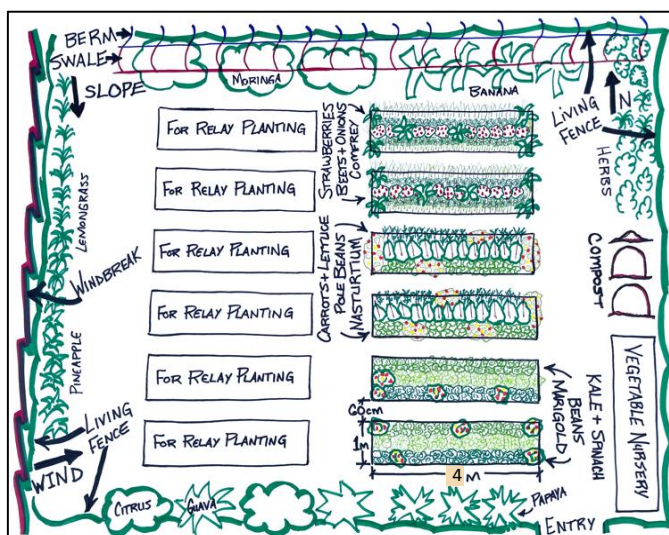 BERM
SWALE
SLOPE
MORINGA
BANANA
LIVING
FENCE
N
HERBS
LEMONGRASS
WINDBREAK
PINEAPPLE
LIVING
FENCE
WIND
FOR RELAY PLANTING
FOR RELAY PLANTING
FOR RELAY PLANTING
FOR RELAY PLANTING
FOR RELAY PLANTING
FOR RELAY PLANTING
STRAWBERRIES
BEETS + ONIONS
COMFREY
CARROTS + LETTUCE
POLE BEANS
NASTURTIUM
COMPOST
VEGETABLE NURSERY
KALE + SPINACH
BEANS
MARIGOLD
60cm
1m
4 M
CITRUS
GUAVA
PAPAYA
ENTRY